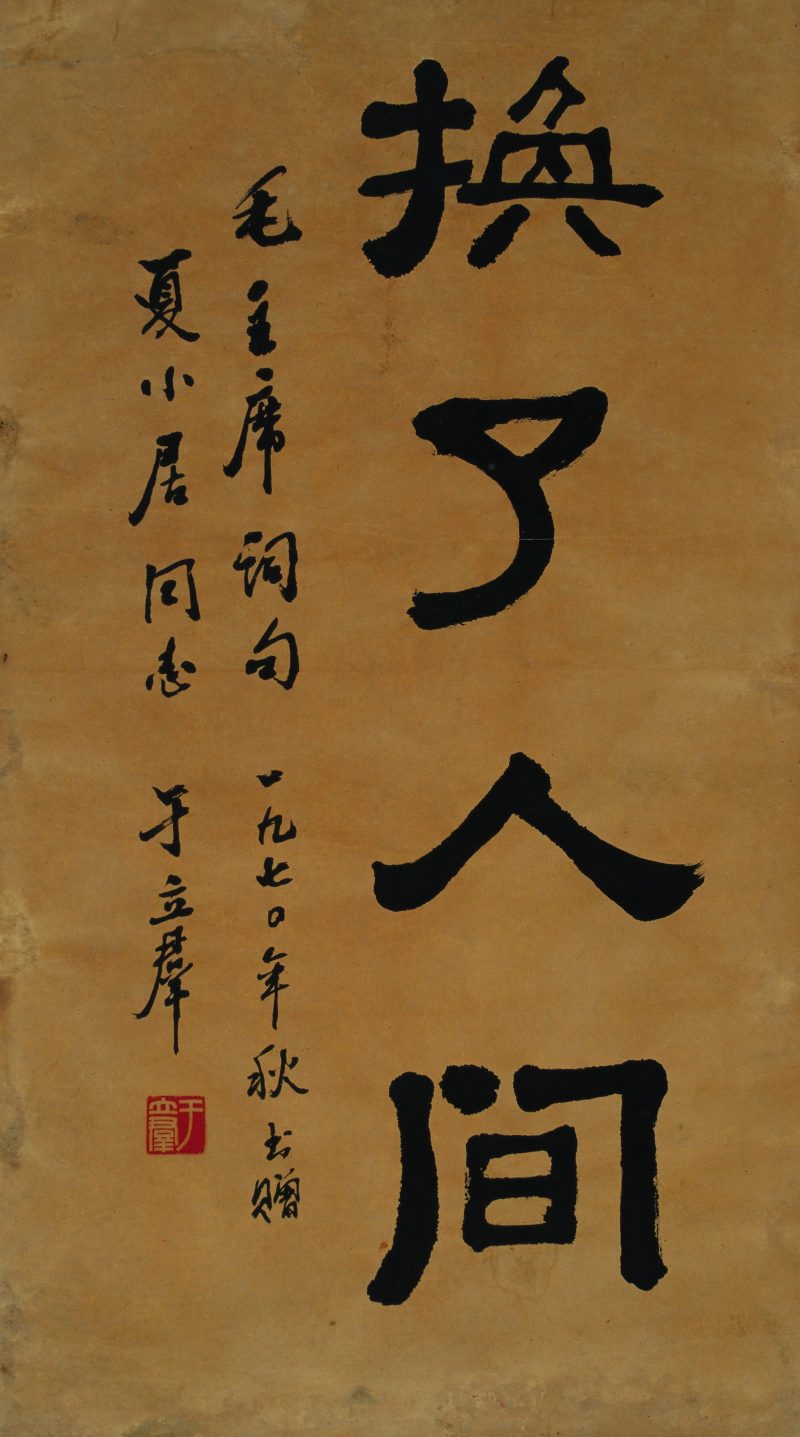 换了人间
毛主席词句 一九七〇年秋书赠
夏小居同志 于立羣
于立羣